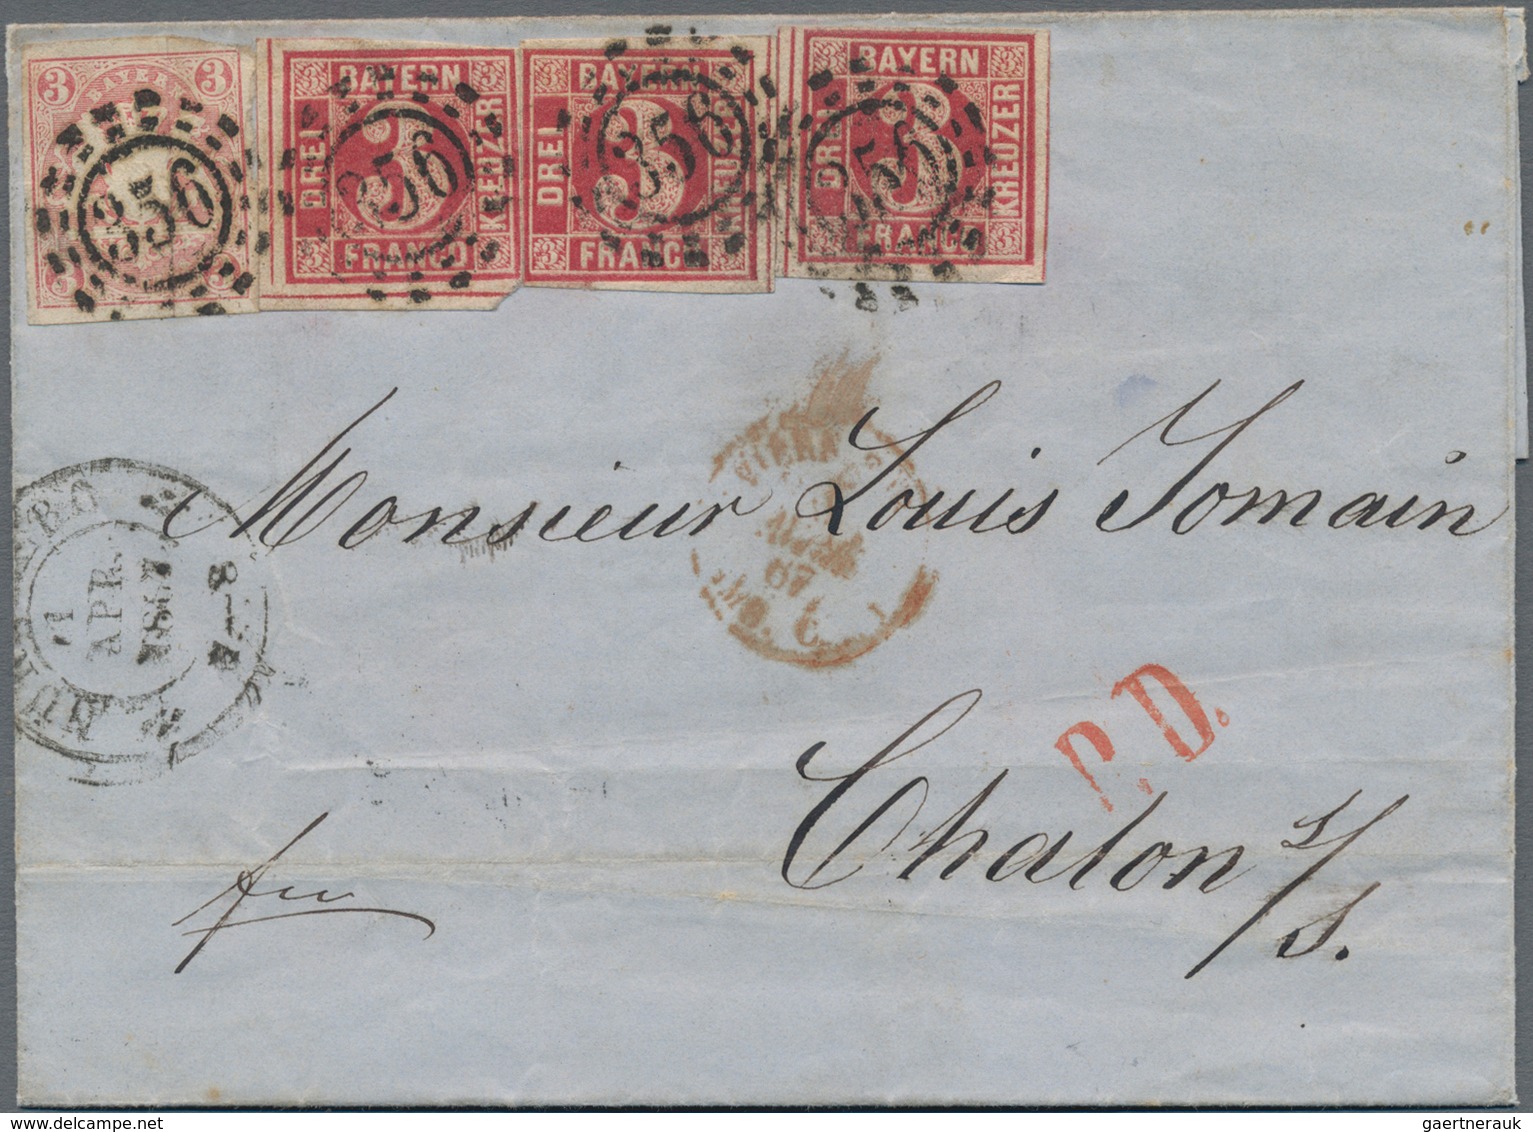 3 BAYERN 3
356
BAYERN
DREI 3 KREUZER
FRANCO
356
BAYERN
DREI 3 KREUZER
FRANCO
356
BAYERN
DREI 3 KREUZER
FRANCO
356
Monsieur Louis Jomain
NÜRNBERG
1
APR.
1867
67
P.D.
Chalon s/S.
gaertnerauk